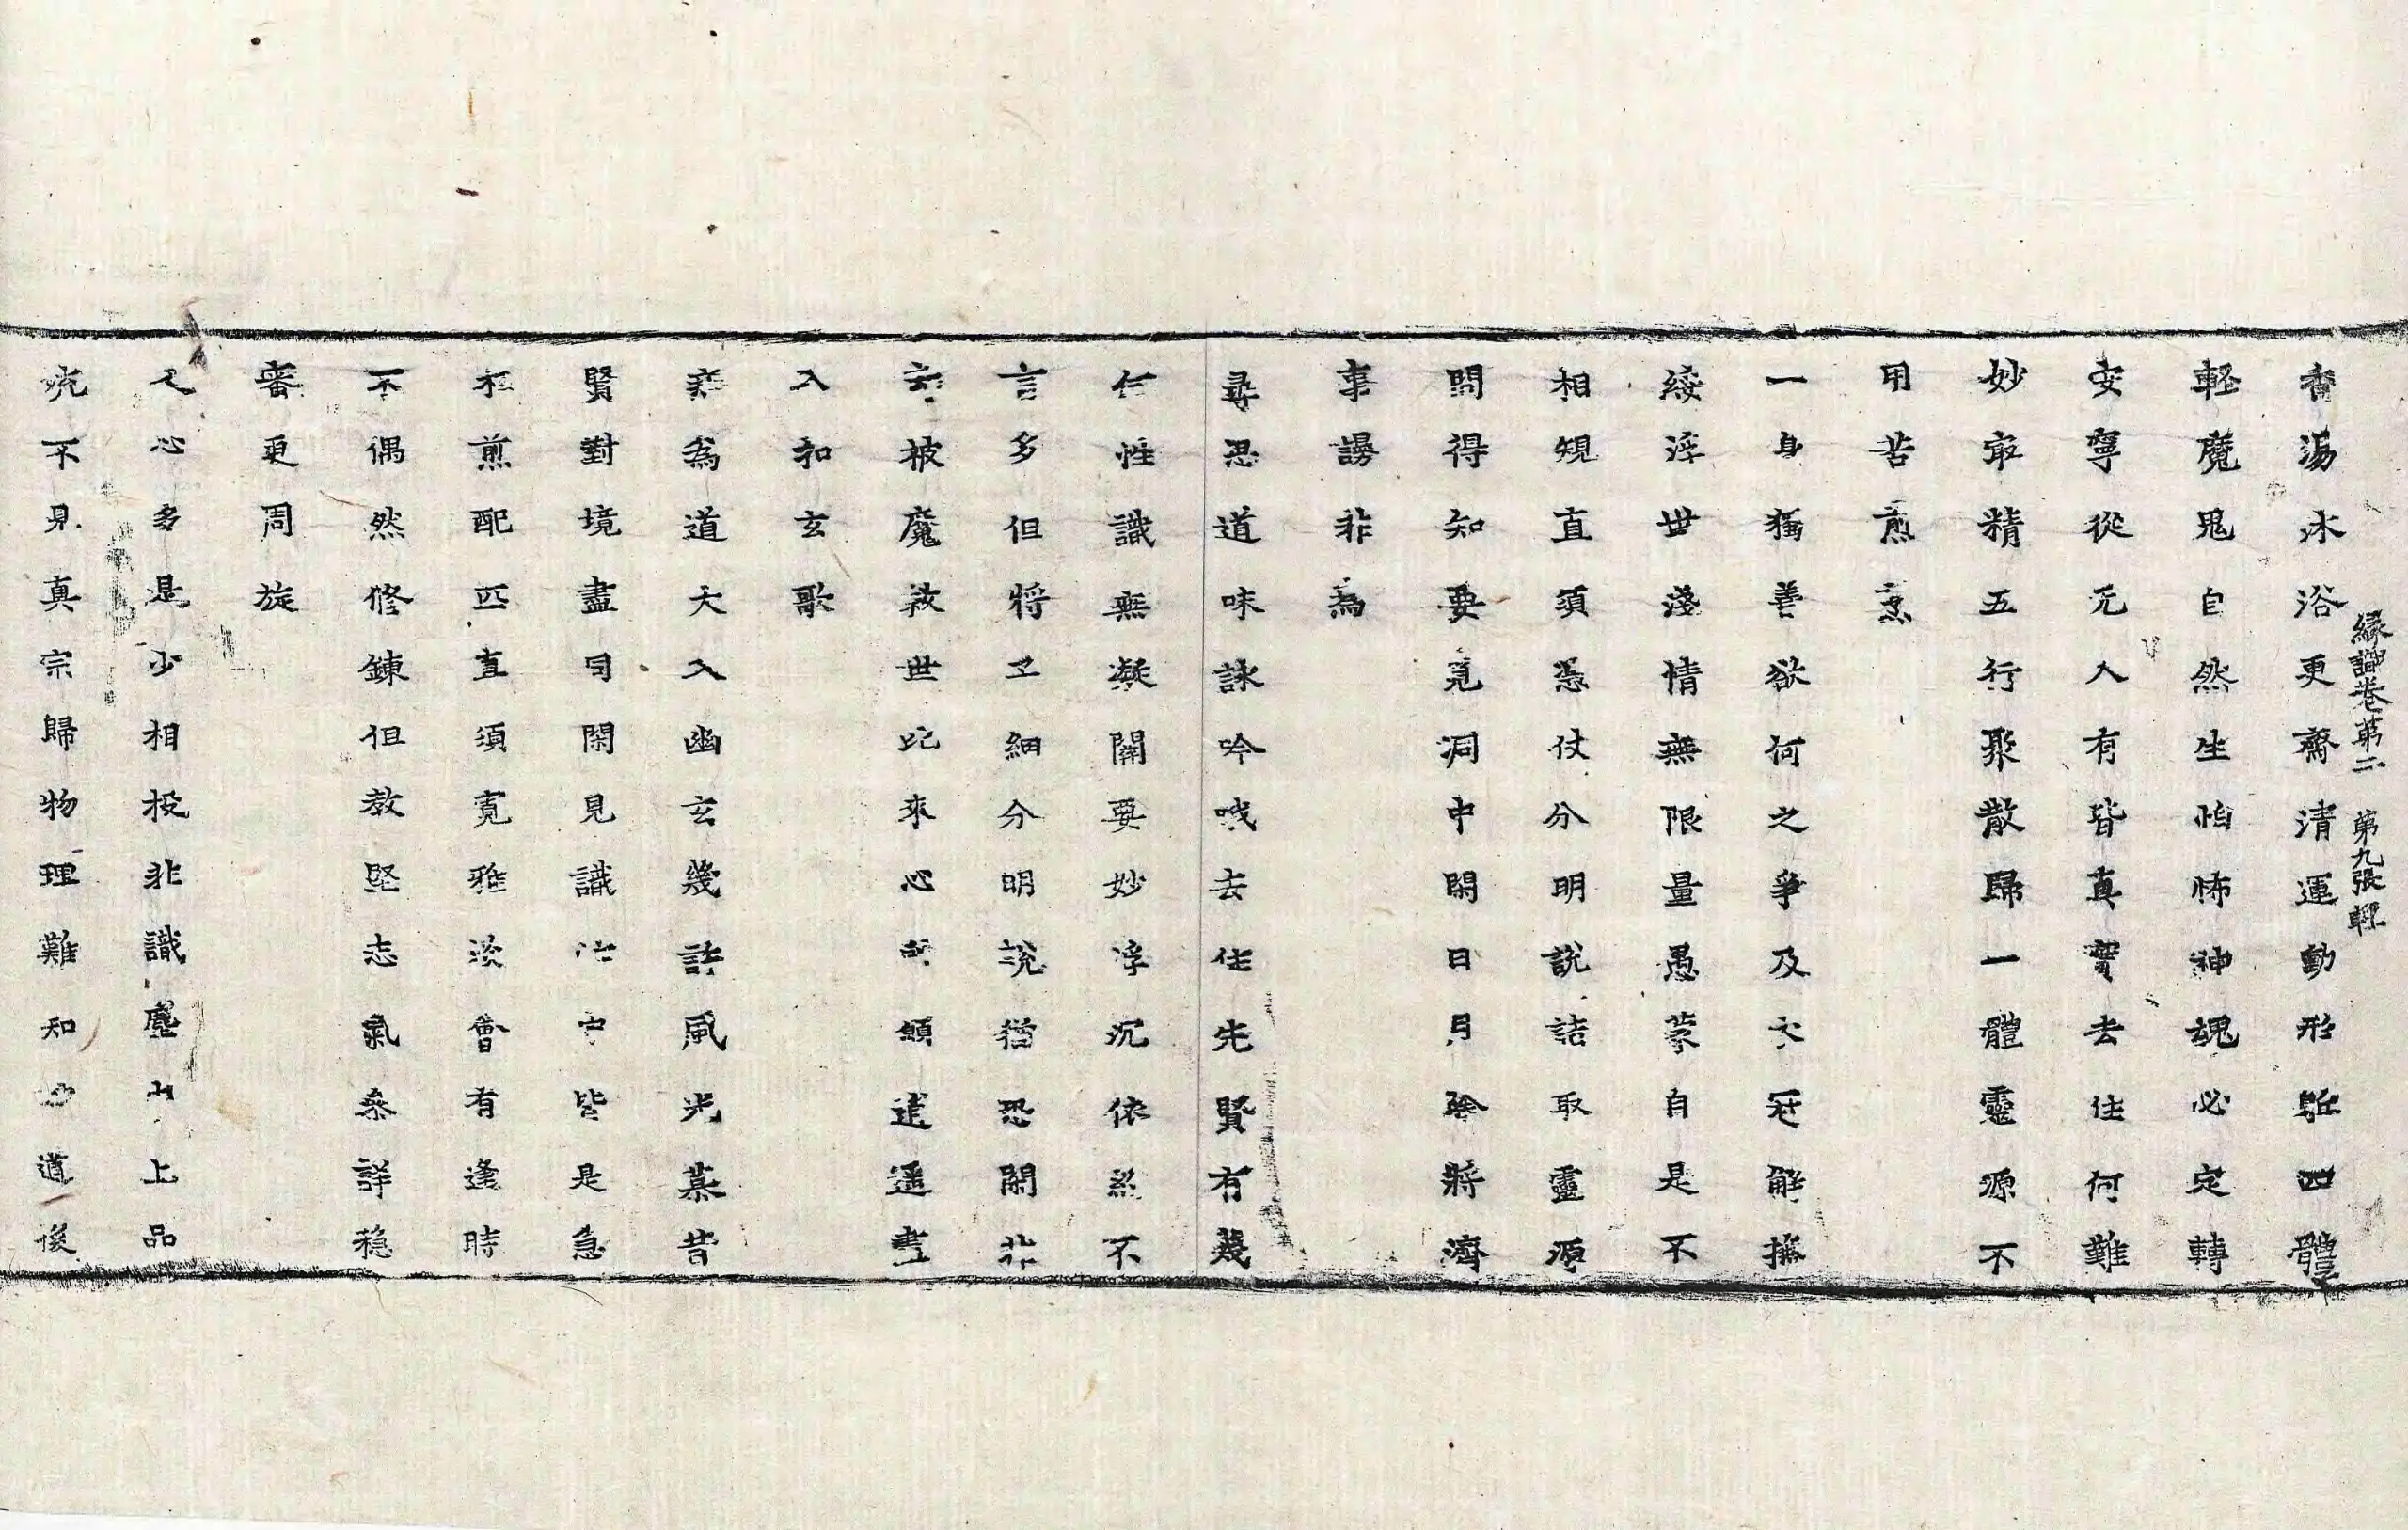 緣識卷第二　第九張　輕
香湯沐浴更齋清運動形軀四體
輕魔鬼自然生怕怖神魂必定轉
安寧從元人有皆真實去住何難
妙㝡精五行聚散歸一體靈源不
用苦煎烹
一身獨善欲何之爭及衣冠解撫
綏浮世淺情無限量愚蒙自是不
相規直須憑仗分明說詰取靈源
問得知要覓洞中閑日月除將濟
事謗非為
尋思道味詠吟哦去住先賢有幾
何性識無凝閑要妙浮沉依然不
言多但將子細分明說猶恐閑非
被魔救世比來心願逍遥盡
入和玄歌
為道大入幽玄幾許風光慕昔
賢對境盡同閑見識此中皆是急
相煎配匹直須寬雅淡會有逢時
不偶然修鍊但教堅志氣叅詳穩
審更周旋
人心多是少相投非識塵中上品
流不見真宗歸物理難知少道後